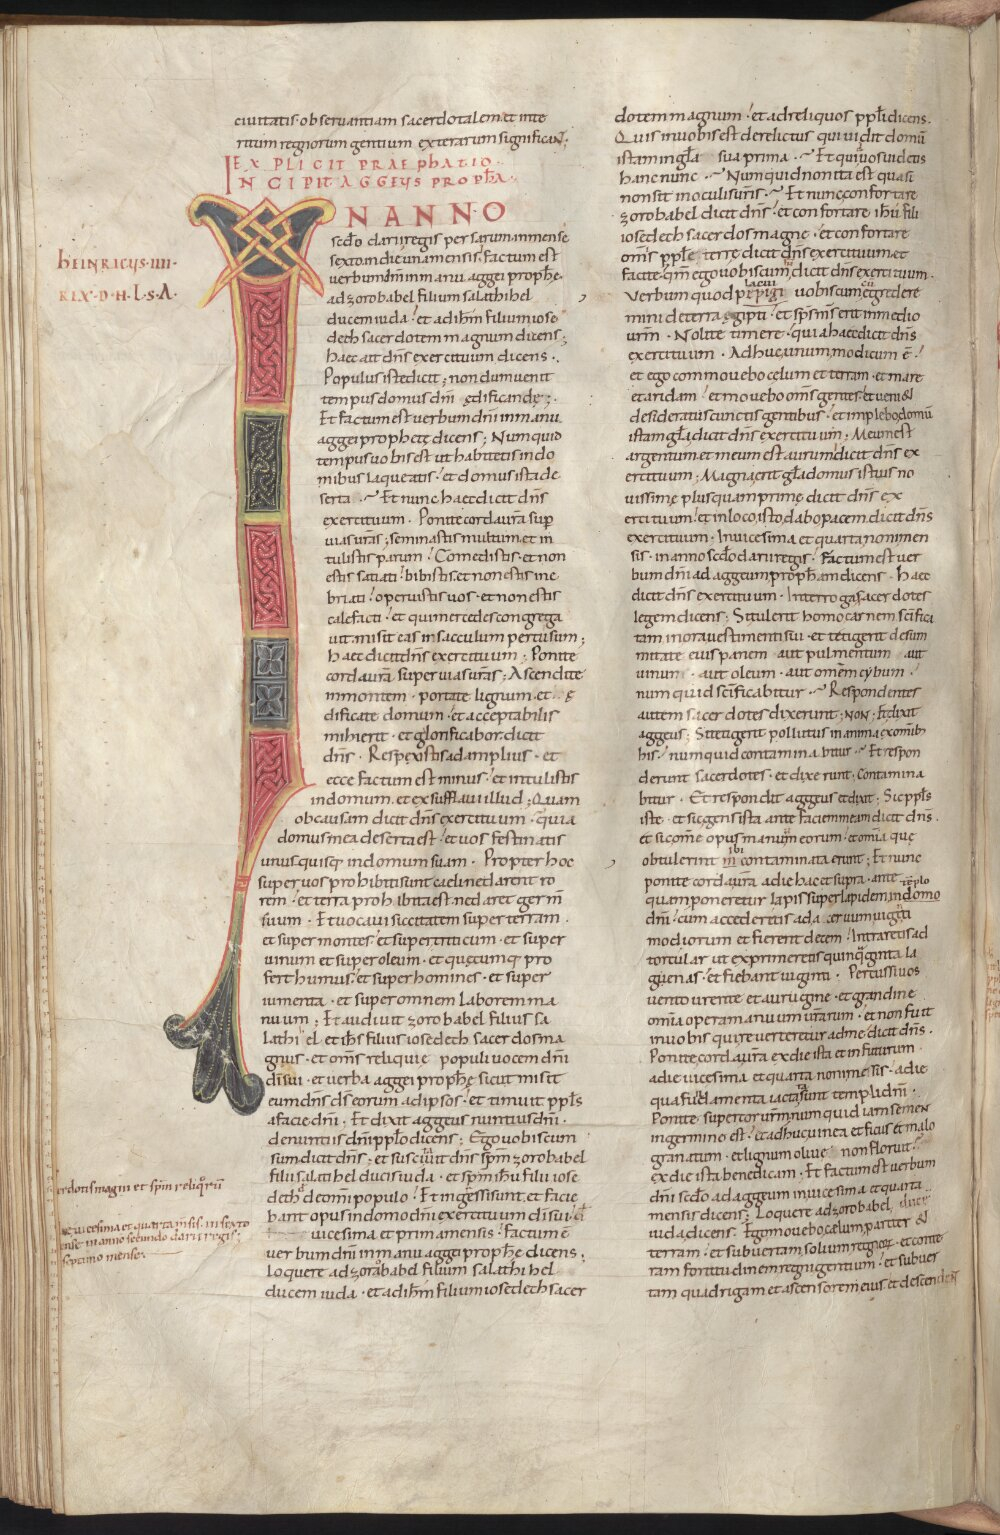 civitatis · observantiam sacerdotalem et inte
ritum regiorum gentium exterarum significaN;
EXPLICIT PRAEPHATIO
INCIPIT AGGEUS PROPHA
IN ANNO
heINRICUS · IIII ·
REX · D · H · L · S · A ·
sedo darii regis persarum in mense
sexto in die una mensis factum est
verbum dni in manu aggei prophe
ad zorobabel filium salathihel
ducem iuda · et ad ihm filium iose
dech sacerdotem magnum dicens;
haec ait dns exercituum dicens ·
Populus iste dicit; nondum venit
tempus domus dni ędificandę;
Et factum est verbum dni in manu
aggei prophetę dicens; Numquid
tempus vobis est ut habitetis in do
mibus laqueatis · et domus ista de
serta · Et nunc haec dicit dns
exercituum · Ponite corda vra sup
vias vras; seminastis multum et in
tulistis parum · Comedistis et non
estis satiati · bibistis et non estis ine
briati · operuistis vos · et non estis
calefacti · et qui mercedes congrega
vit · misit eas in sacculum pertusum;
haec dicit dns exercituum · Ponite
corda vra super vias vras; Ascendite
in montem · portate lignum · et ę
dificate domum · et acceptabilis
mihi erit · et glorificabor · dicit
dns · Respexistis ad amplius · et
ecce factum est minus · et intulistis
in domum · et exsufflavi illud; Quam
ob causam dicit dns exercituum · quia
domus mea deserta est · et vos festinatis
unusquisq in domum suam · Propter hoc
super vos prohibiti sunt caeli ne darent ro
rem · et terra prohibita est ne daret germ
suum · Et vocavi siccitatem super terram ·
et super montes · et super triticum · et super
vinum et super oleum · et quęcumq pro
fert humus · et super homines · et super
iumenta · et super omnem laborem ma
nuum; Et audivit zorobabel filius sa
lathiel et ihs filius iosedech sacerdos ma
gnus · et oms reliquie populi vocem dni
di sui · et verba aggei prophę sicut misit
eum dns ds eorum ad ipsos · et timuit ppls
a facie dni · Et dixit aggeus nuntius dni ·
de nuntiis dni pplo dicens; Ego vobiscum
sum dicit dns; et suscitavit dns spm zorobabel
filii salatihel ducis iuda · et spm ihu filii iose
dech de omi populo · Et ingressi sunt · et facie
bant opus in domo dni exercituum di sui ·
vicesima et prima mensis · Factum ē
verbum dni in manu aggei prophę dicens;
loquere ad zorobabel filium salathihel
ducem iuda · et ad ihm filium iosedech sacer
erdotis magni et spm reliqorum
vicesima et quarta msis · in sexto
ense in anno secundo darii regis;
septimo mense
dotem magnum · et ad reliquos pplos dicens ·
Quis in vobis est derelictus qui vidit domū
istam in gla sua prima · Et quid vos videtis
hanc nunc · Numquid non ita est quasi
non sit in oculis vris · Et nunc confortare
zorobabel dicit dns · et confortare ihu fili
iosedech sacerdos magne · et confortare
oms pple terre dicit dns exercituum et
facite · qm ego vobiscum dicit dns exercituum ·
Verbum quod pepigi vobiscum cū egrede re
mini de terra egipti · et sps ms erit in medio
vrm · Nolite timere · quia haec dicit dns
exercituum · Adhuc unum modicum ē ·
et ego commovebo celum et terram · et mare
et aridam · et movebo oms gentes · et veniet
desideratus cunctis gentibus · et implebo domū
istam gla dicit dns exercituum; Meum est
argentum et meum est aurum dicit dns ex
ercituum; Magna erit gla domus istius no
vissime plus quam prime dicit dns ex
ercituum · et in loco isto dabo pacem dicit dns
exercituum · In vicesima et quarta noni men
sis · in anno sedo darii regis · factum est ver
bum dni ad aggeum propham dicens · haec
dicit dns exercituum · Interroga sacerdotes
legem dicens; Si tulerit homo carnem scifica
tam in ora vestimenti sui · et tetigerit de sum
mitate eius panem aut pulmentum aut
vinum · aut oleum · aut omem cybum ·
numquid scificabitur · Respondentes
autem sacerdotes dixerunt; NON; Et dixit
aggeus; Si tetigerit pollutus in anima ex omib
his · numquid contaminabitur · Et respon
derunt sacerdotes · et dixerunt; Contamina
bitur · Et respondit aggeus et dixit; Sic ppls
iste · et sic gens ista ante faciem meam dicit dns ·
et sic ome opus manuum eorum · et omia que
obtulerint ibi contaminata erunt; Et nunc
ponite corda vra a die hac et supra · ante
quam poneretur lapis super lapidem in templo
dni · cum accederetis ad acervum viginti
modiorum et fierent decem · Intraretis ad
torcular ut exprimeretis quinquaginta la
guenas · et fiebant viginti · Percussi vos
vento urente et aurugine · et grandine
omia opera manuum vrarum · et non fuit
in vobis qui reverteretur ad me dicit dns ·
Ponite corda vra ex die ista et in futurum ·
a die vicesima et quarta noni mensis · a die
qua fundamenta iacta sunt templi dni ·
Ponite super cor vrm numquid iam semen
in germine est · et adhuc vinea et ficus et malo
granatum · et lignum olive non floruit ·
ex die ista benedicam · Et factum est verbum
dni sedo ad aggeum in vicesima et quarta
mensis dicens; Loquere ad zorobabel ducē
iuda dicens; Ego movebo caelum pariter et
terram · et subvertam solium regnor · et conte
ram fortitudinem regni gentium · et subver
tam quadrigam et ascensorem eius et descendent